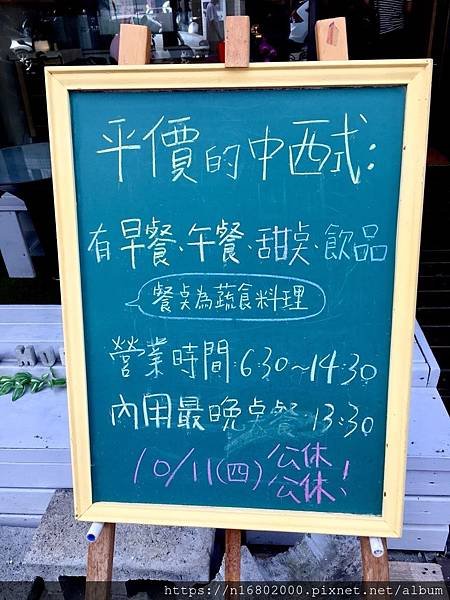 平價的中西式：
有早餐、午餐、甜点、飲品
餐点為蔬食料理
營業時間：6:30～14:30
內用最晚点餐：13:30
10/11(四) 公休
公休！
https://n16802000.pixnet.net/album